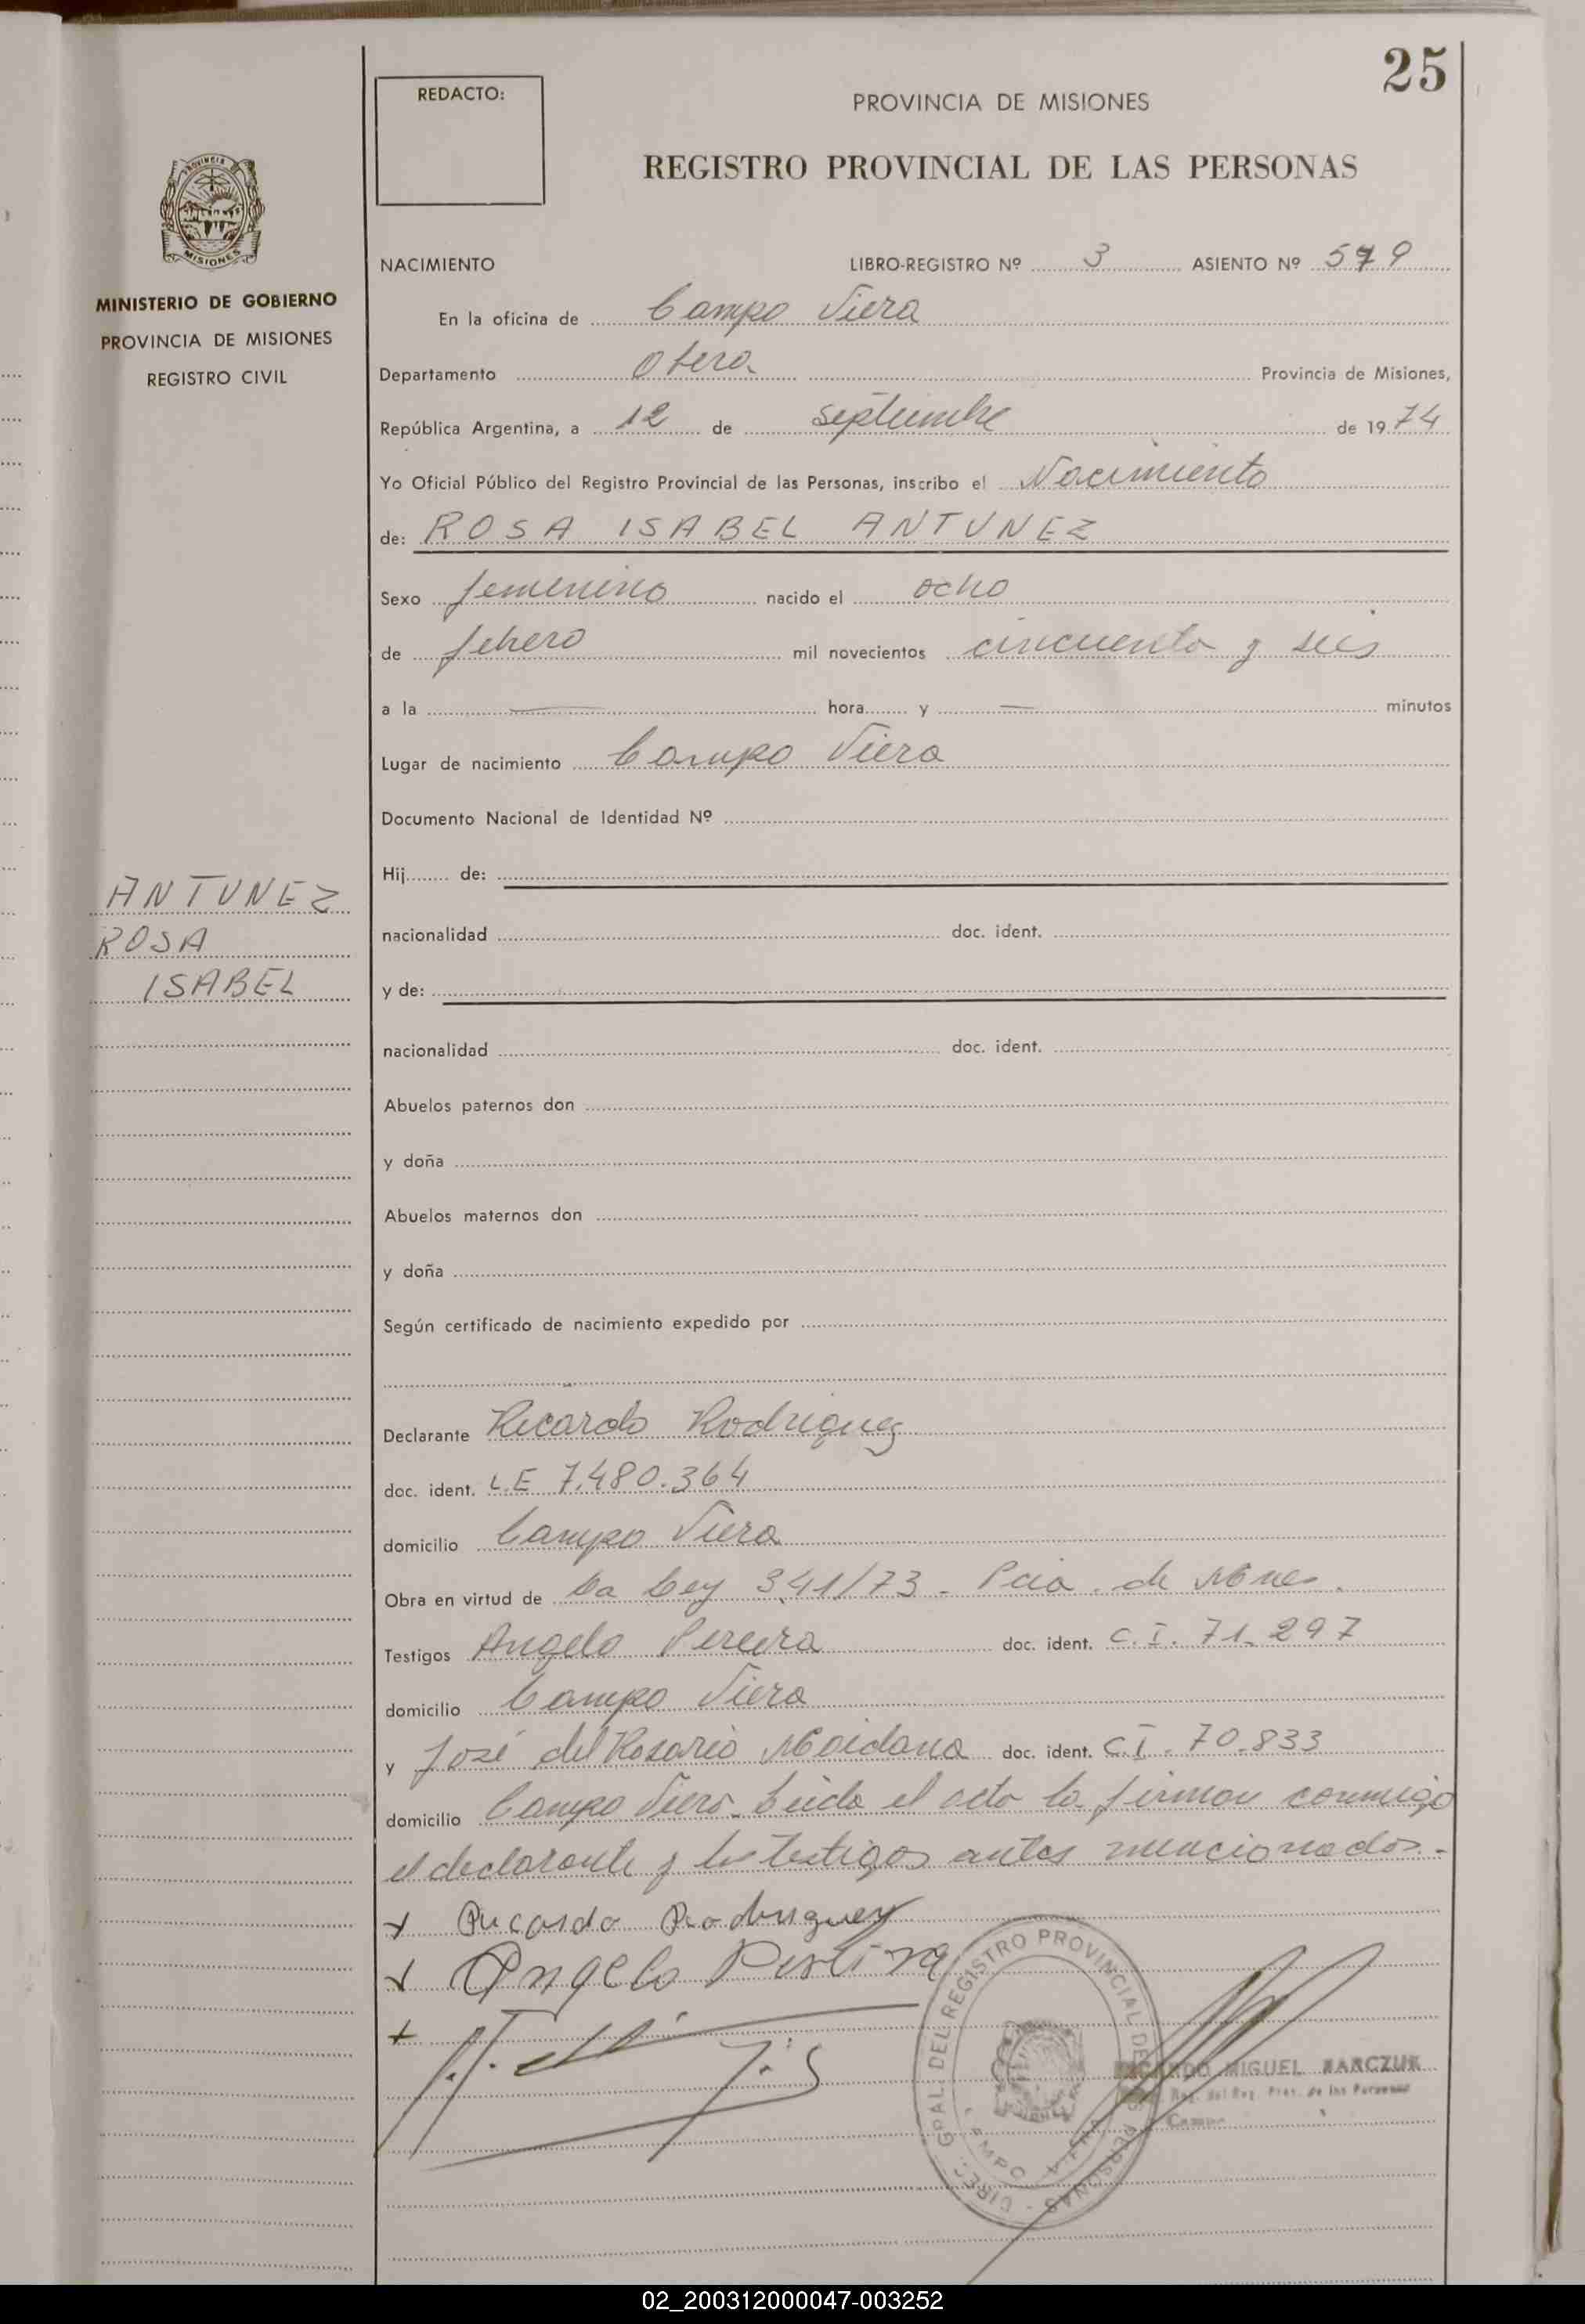 25
REDACTO:
PROVINCIA DE MISIONES
REGISTRO PROVINCIAL DE LAS PERSONAS
MISIONES
MINISTERIO DE GOBIERNO
PROVINCIA DE MISIONES
REGISTRO CIVIL
NACIMIENTO LIBRO-REGISTRO Nº 3 ASIENTO Nº 579
En la oficina de Campo Viera
Departamento Obera Provincia de Misiones,
República Argentina, a 12 de septiembre de 1974
Yo Oficial Público del Registro Provincial de las Personas, inscribo el Nacimiento
de: ROSA ISABEL ANTUNEZ
Sexo femenino nacido el ocho
de febrero mil novecientos cincuenta y seis
a la — hora y — minutos
Lugar de nacimiento Campo Viera
Documento Nacional de Identidad Nº
Hij de:
nacionalidad doc. ident.
y de:
nacionalidad doc. ident.
Abuelos paternos don
y doña
Abuelos maternos don
y doña
Según certificado de nacimiento expedido por
ANTUNEZ
ROSA
ISABEL
Declarante Ricardo Rodriguez
doc. ident. L.E 7.480.364
domicilio Campo Viera
Obra en virtud de La Ley 341/73 - Pcia. de Mnes.
Testigos Angelo Pereira doc. ident. C.I. 71.297
domicilio Campo Viera
y José del Rosario Maidana doc. ident. C.I. 70.833
domicilio Campo Viera. Leida el acta la firman conmigo
el declarante y los testigos antes mencionados.-
x Ricardo Rodriguez
x Angelo Pereira
CIREC. GRAL. DEL REGISTRO PROVINCIAL DE LAS PERSONAS
CAMPO VIERA
MIGUEL BARCZUK
Reg. del Reg. Prov. de las Personas
Campo
02_200312000047-003252